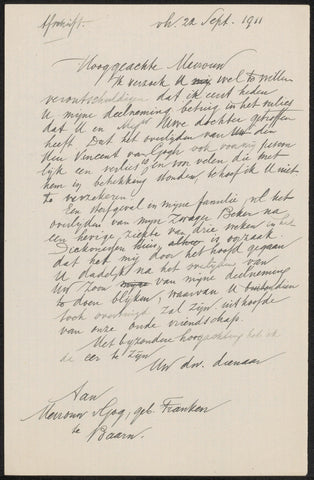 Afschrift. d. 22 Sept. 1911
Hooggeachte Mevrouw
Ik verzoek U mij wel te willen
verontschuldigen dat ik eerst heden
U mijne deelneming betuig in het verlies
dat U en Uwe dochter getroffen
heeft. Dat het overlijden van den
Heer Vincent van Gogh ook voor mij persoon
lijk een verlies is en voor velen die met
hem in betrekking stonden, behoef ik U niet
te verzekeren.
Een sterfgeval in mijne familie, nl. het
overlijden van mijn zwager Beker na
een hevige ziekte van drie weken in het
Diakonessen is oorzaak
dat het mij door het hoofd gegaan
U dadelijk na het overlijden van
Uw zoon van mijne deelneming
te doen blijken, waarvan U
ook overtuigd zal zijn uit hoofde
van onze oude vriendschap.
Met bijzondere hoogachting heb ik
de eer te zijn
Uw dw. dienaar
Aan
Mevrouw v Gog, geb. Franken
te
Baarn.